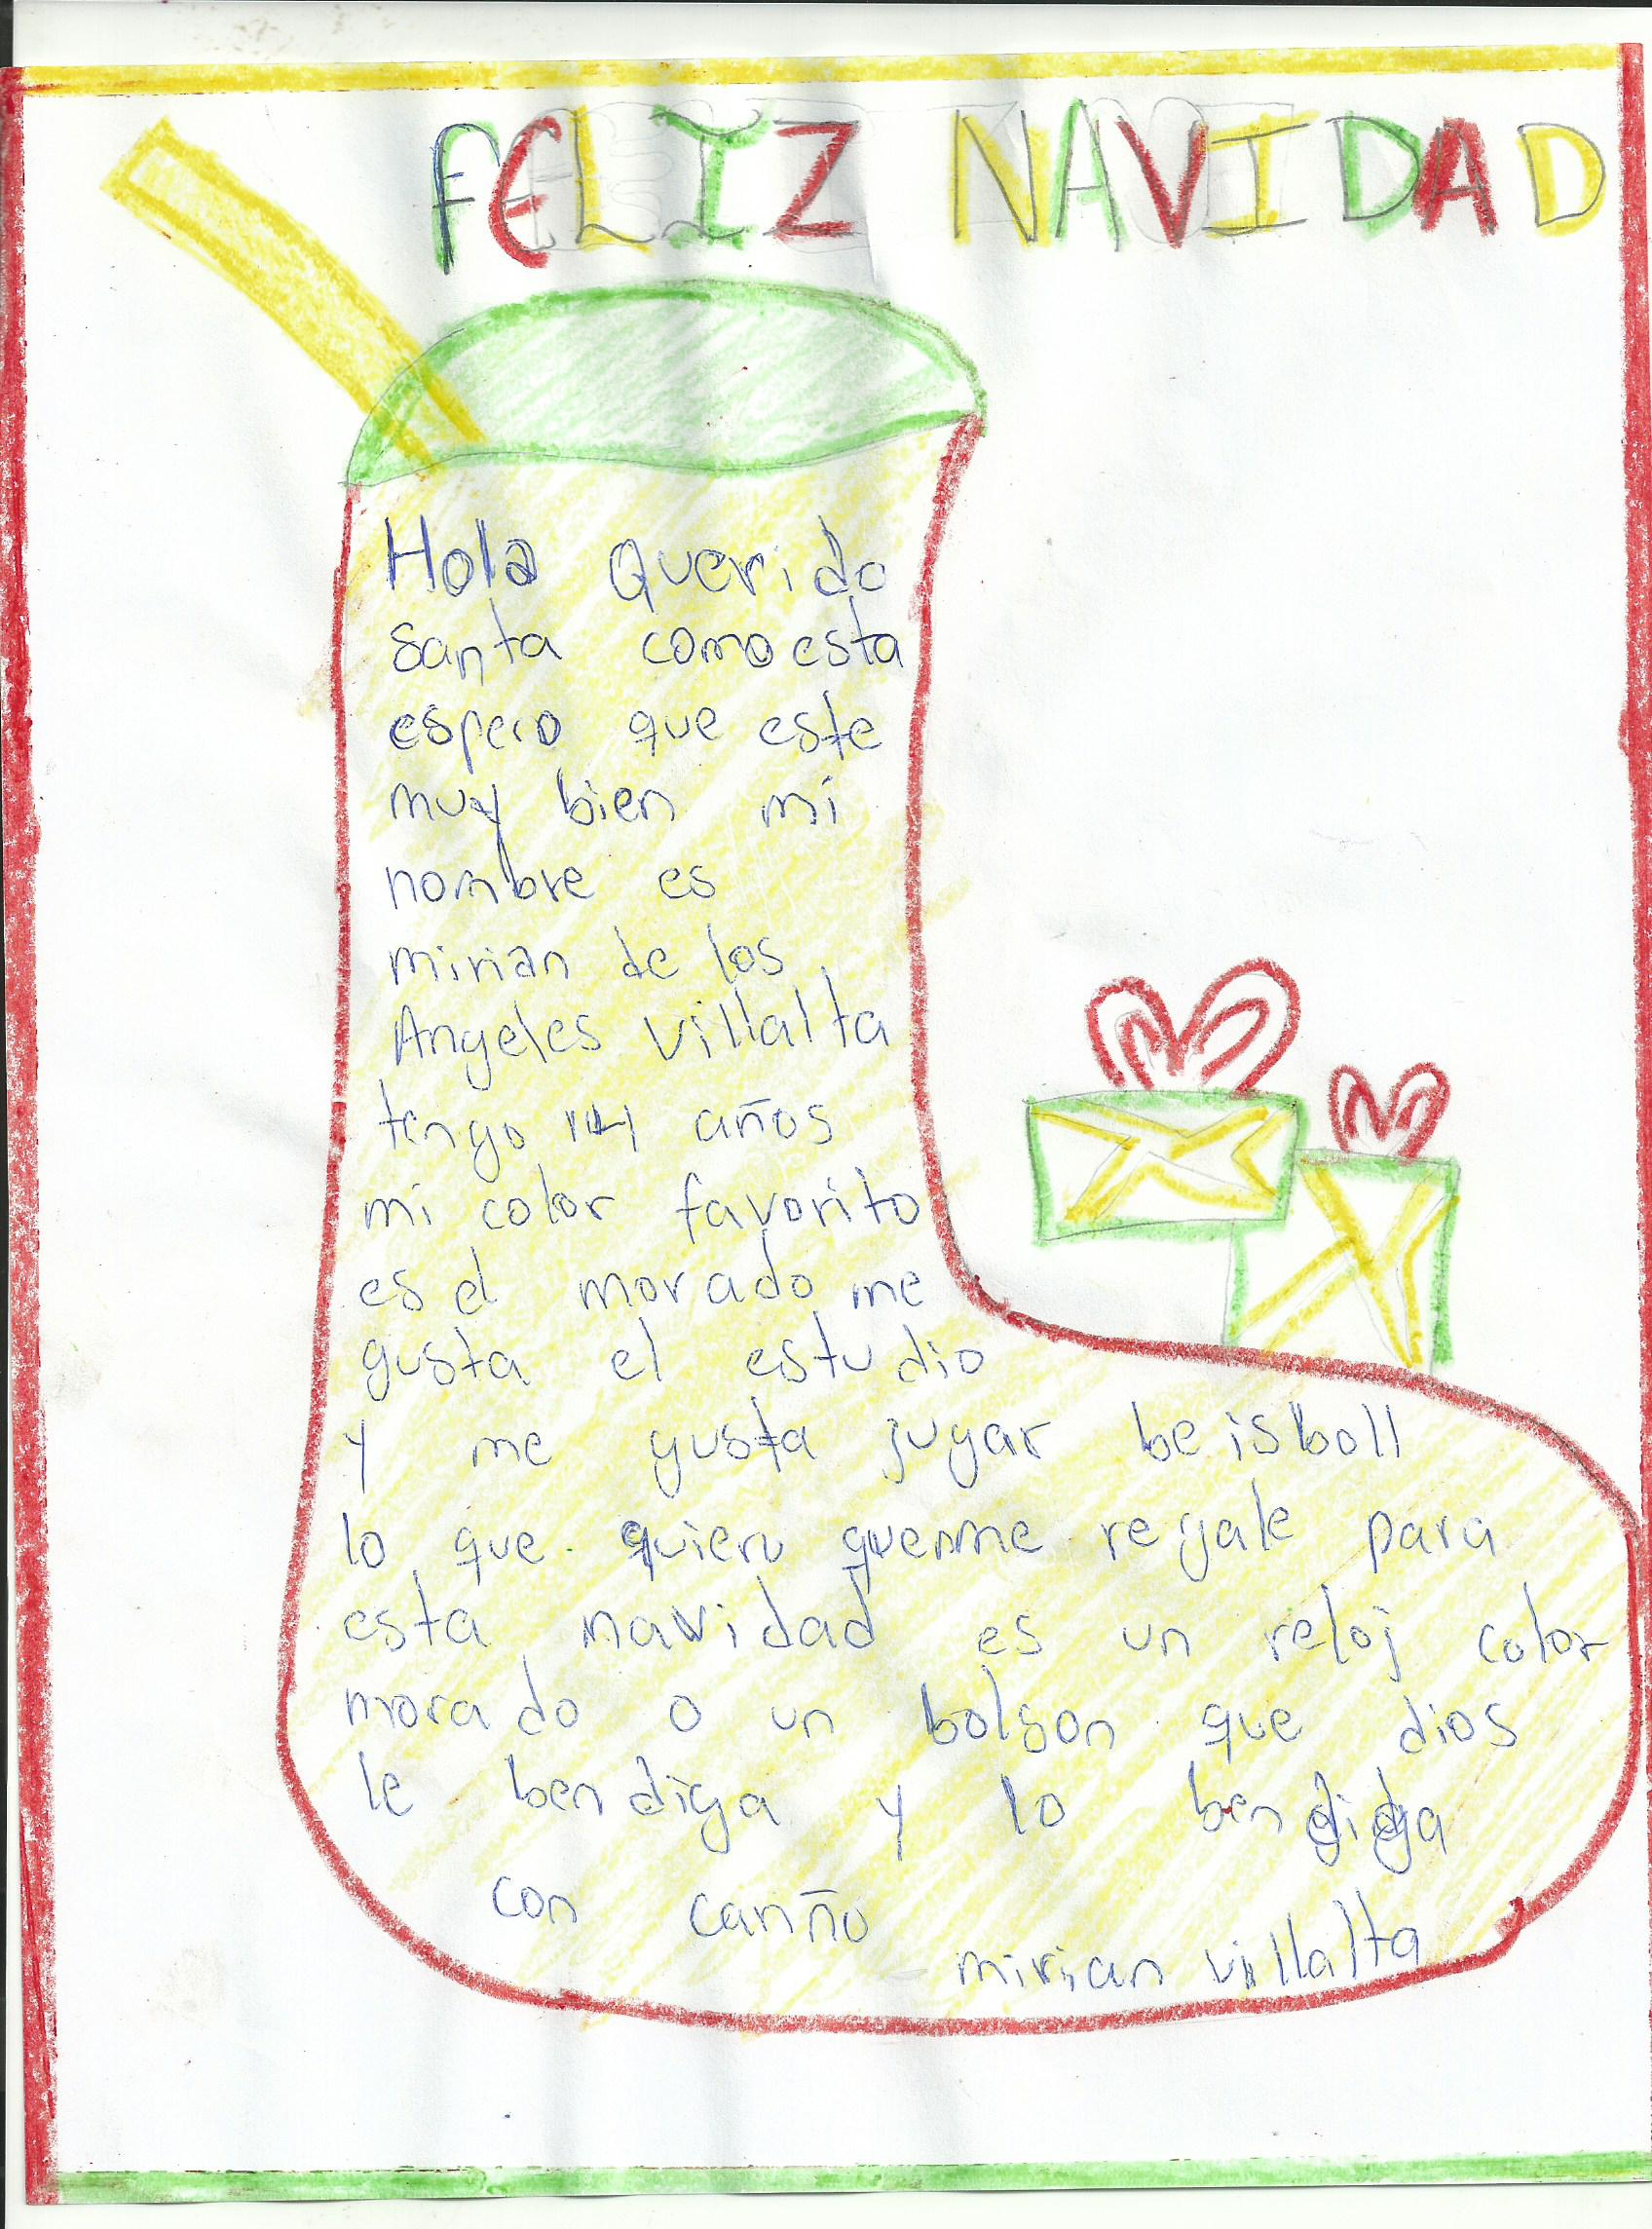 FELIZ NAVIDAD
Hola Querido
Santa como esta
espero que este
muy bien mi
nombre es
mirian de los
Angeles villalta
tengo 14 años
mi color favorito
es el morado me
gusta el estudio
y me gusta jugar beisboll
lo que quiero quenme regale para
esta navidad es un reloj color
morado o un bolson que dios
le bendiga y lo bendiga
con cariño
mirian villalta